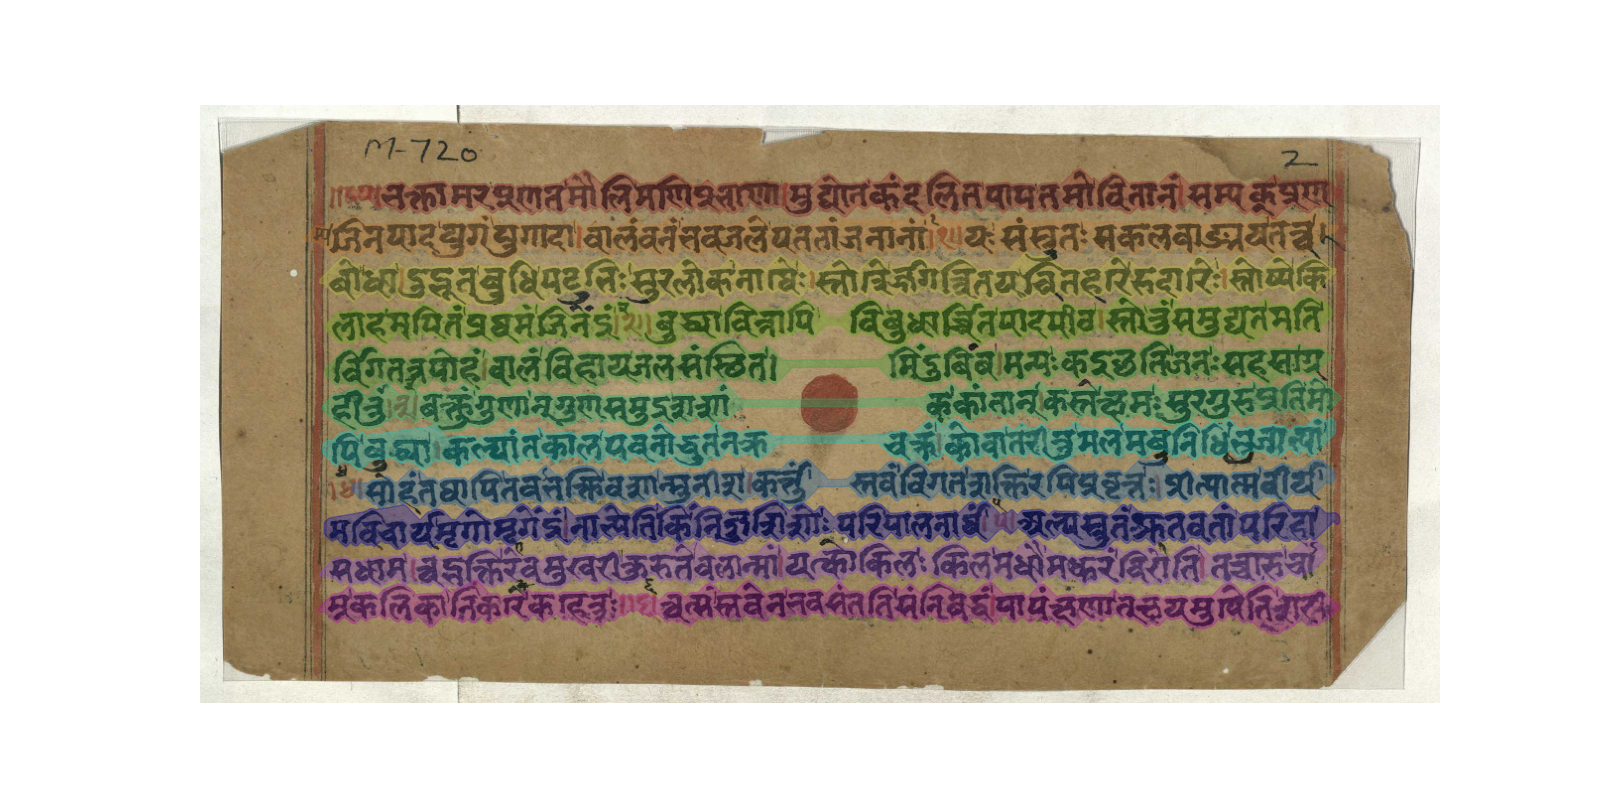 M-720
2
भक्तामरप्रणतमौलिमणिप्रभाणा।मुद्योतकंदलितपापतमोवितानं।सम्यक्प्रणम्य
जिनपादयुगंयुगादा।वालंवनंभवजलेपततांजनानां।१।यः संस्तुतः सकलवाङ्मयतत्व
बोधा।दुद्भूतबुधिपटुभिः सुरलोकनाथैः।स्तोत्रैर्जगत्रितयचितहरैरुदारैः।स्तोष्येकि
लाहमपितंप्रथमंजिनेंद्रं।२।बुध्याविनापि विबुधार्चितपादपीठ।स्तोतुंसमुद्यतमति
र्विगतत्रपोहं।बालंविहायजलसंस्थित। मिंदुबिंब।मन्यः कइछतिजनः सहसाग्र
हीतुं।३।वक्तुंगुणान्गुणसमुद्रशशां कंकांतान्।कस्तेक्षमः सुरगुरुप्रतिमो
पिबुध्या।कल्पांतकालपवनोद्धतनक्र चक्रं।कोवातरीतुमलमंबुनिधिंभुजाभ्यां
।४।सोहंतथापितवभक्तिवशान्मुनीश।कर्तुं स्तवंविगतशक्तिरपिप्रवृत्तः।प्रीत्यात्मवीर्य
मविचार्यमृगोमृगेंद्रं।नाभ्येतिकिंनिजशिशोः परिपालनार्थं।५।अल्पश्रुतंश्रुतवतांपरिहा
सधाम।त्वद्भक्तिरेवमुखरीकुरुतेबलान्मां।यत्कोकिलः किलमधौमधुरंविरौति।तच्चारुचा
म्रकलिकानिकरैकहेतुः।६।त्वत्संस्तवेनभवसंततिसंनिबद्धं।पापंक्षणात्क्षयमुपैतिशरी